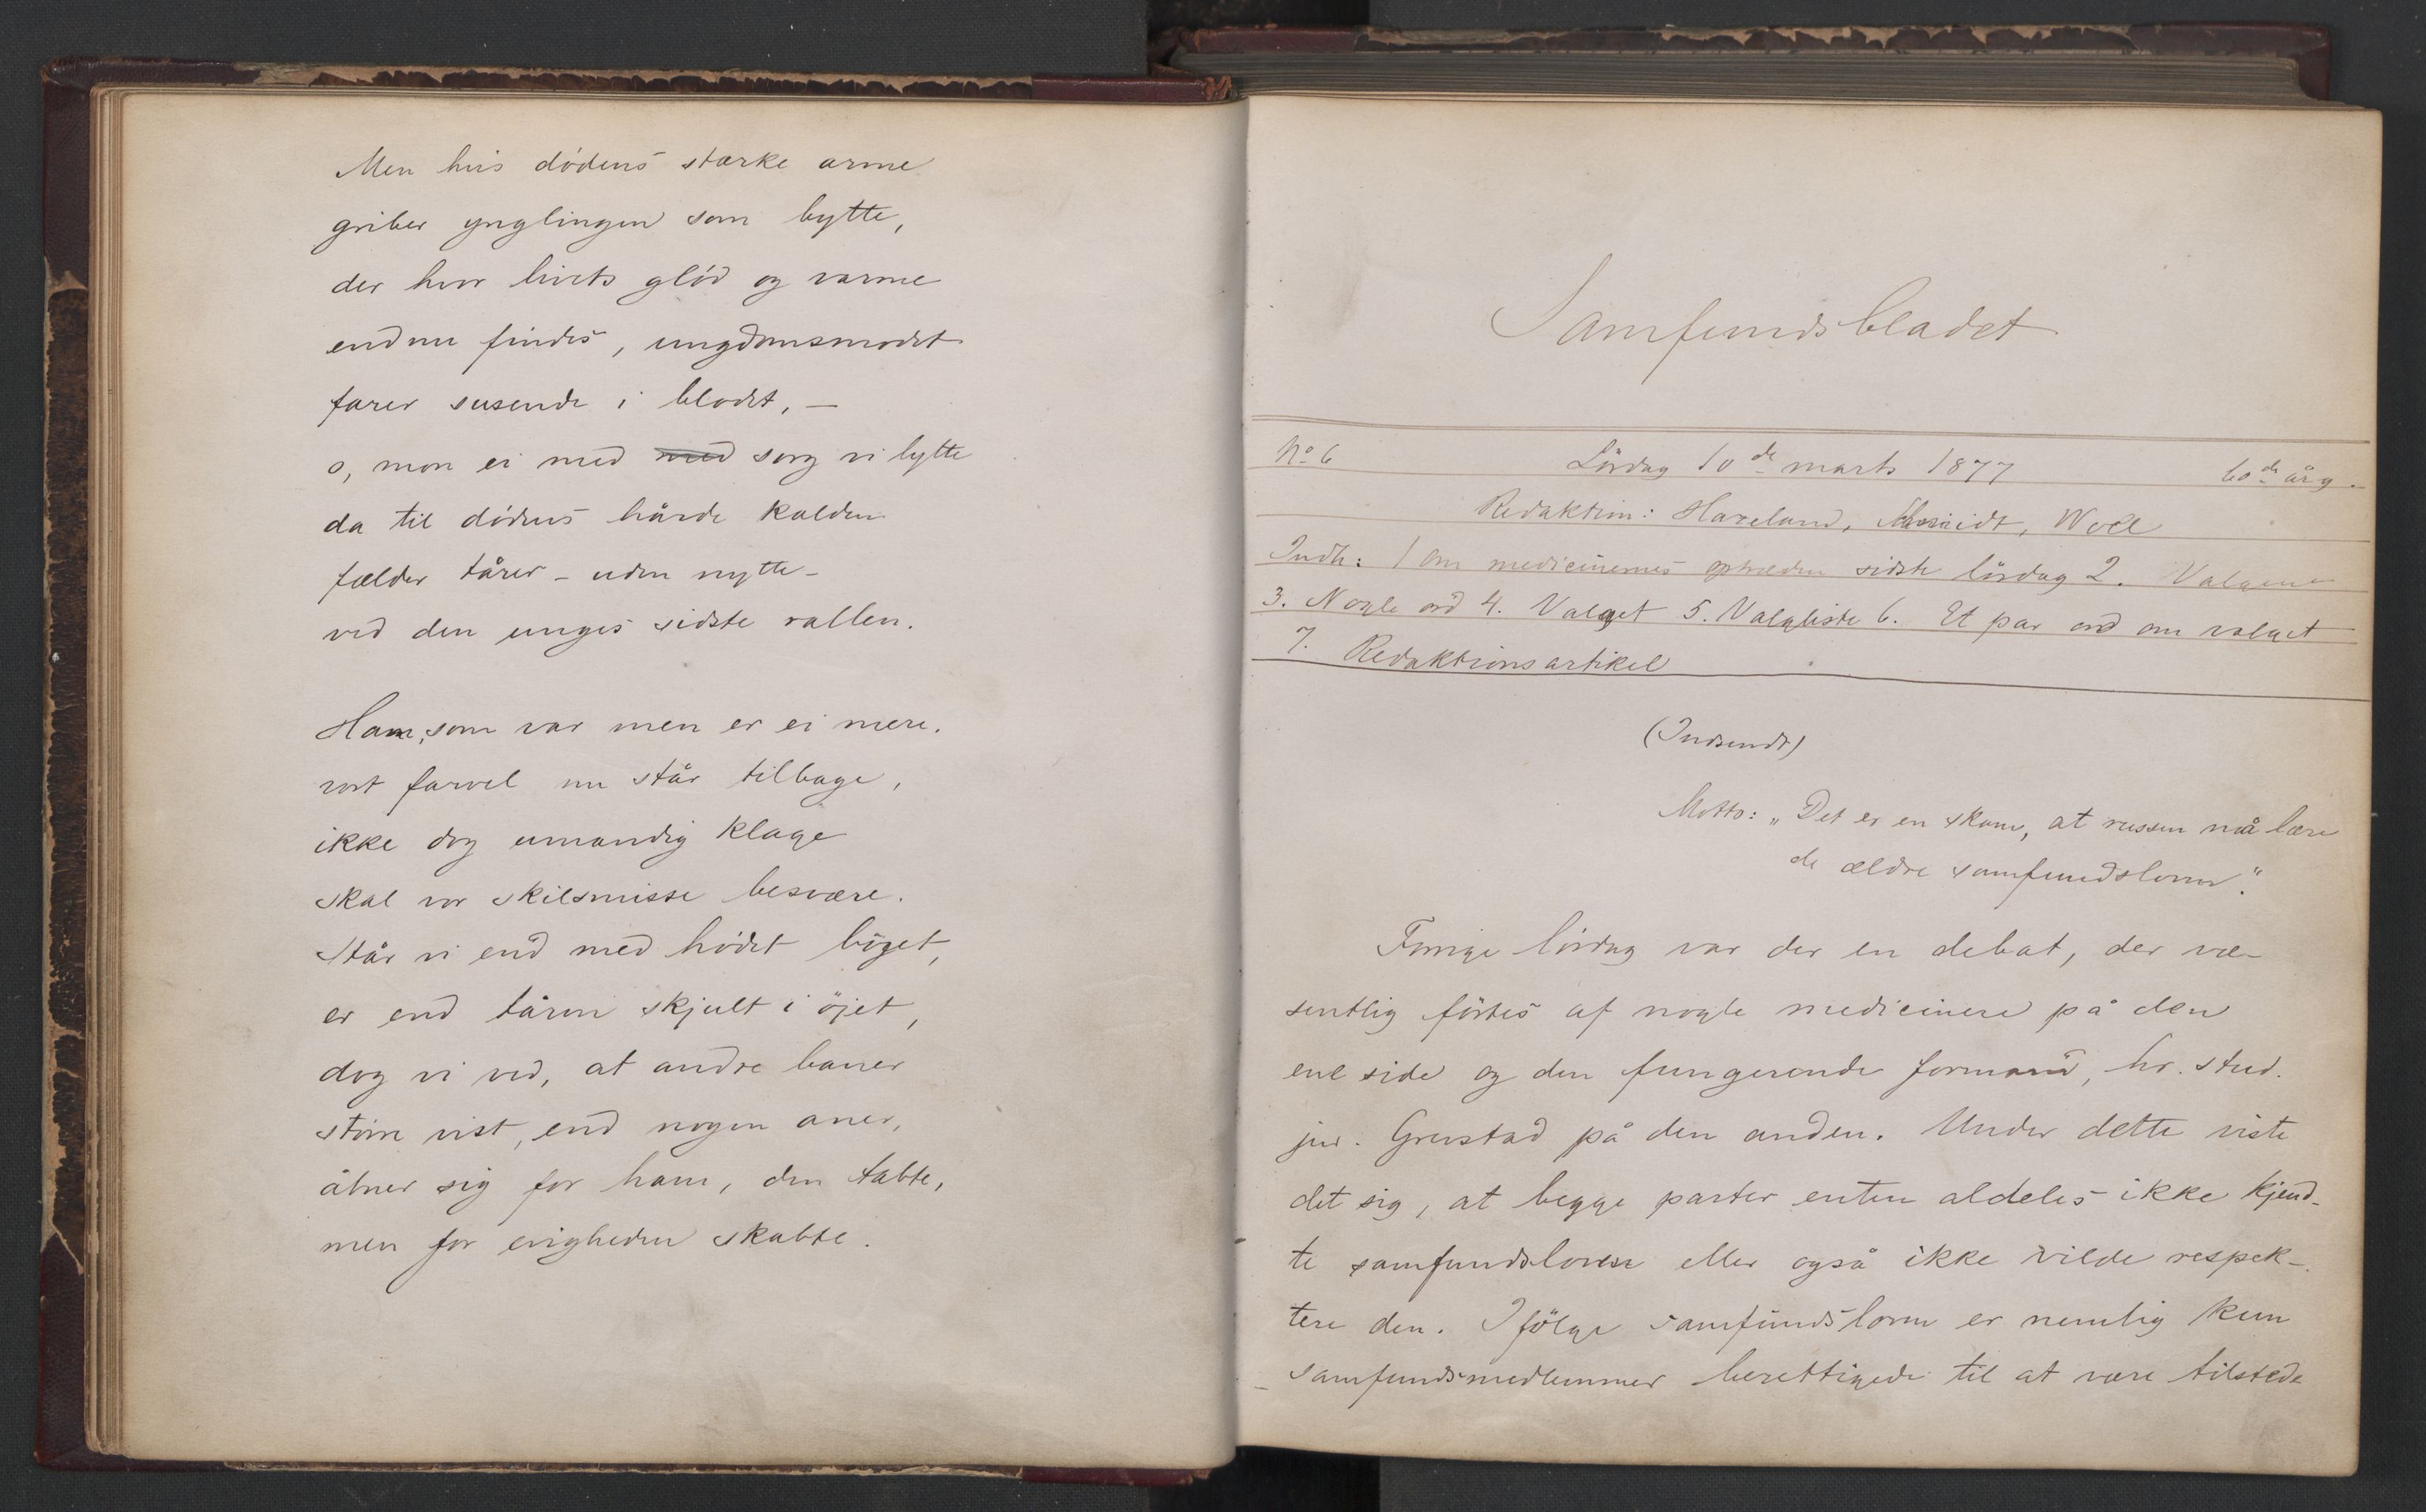 Men hvis dødens stærke arme
griber ynglingen som bytte,
der hvor livets glød og varme
endnu findes, ungdomsmodet
farer susende i blodet, —
o, mon ei med med sorg vi lytte
da til dødens hårde kalden
fælder tårer – uden nytte –
ved den unges sidste rallen.
Ham, som var men er ei mere.
vort farvel nu står tilbage,
ikke dog umandig klage
skal vor skilsmisse besvære.
Står vi end med hødet böget,
er end tåren skjult i öjet,
dog vi ved, at andre baner
större vist, end nogen aner,
åbner sig for ham, den tabte,
men for evigheden skabte.
Samfundsbladet
No 6 Lördag 10de marts 1877 60de årg.
Redaktion: Haveland, Schmidt, Woll
Indh: 1 Om medicinernes optræden sidste lördag 2. Valgene
3. Nogle ord 4. Valget 5. Valgliste 6. Et par ord om valget
7. Redaktionsartikel
(Indsendt)
Motto: „Det er en skam, at russen må lære
de ældre samfundsloven".
Forrige lördag var der en debat, der væ-
sentlig förtes af nogle medicinere på den
ene side og den fungerende formand, hr. stud.
jur. Grevstad på den anden. Under dette viste
det sig, at begge parter enten aldeles ikke kjend-
te samfundsloven eller også ikke vilde respek-
tere den. Ifölge samfundsloven er nemlig kun
samfundsmedlemmer berettigede til at være tilstede